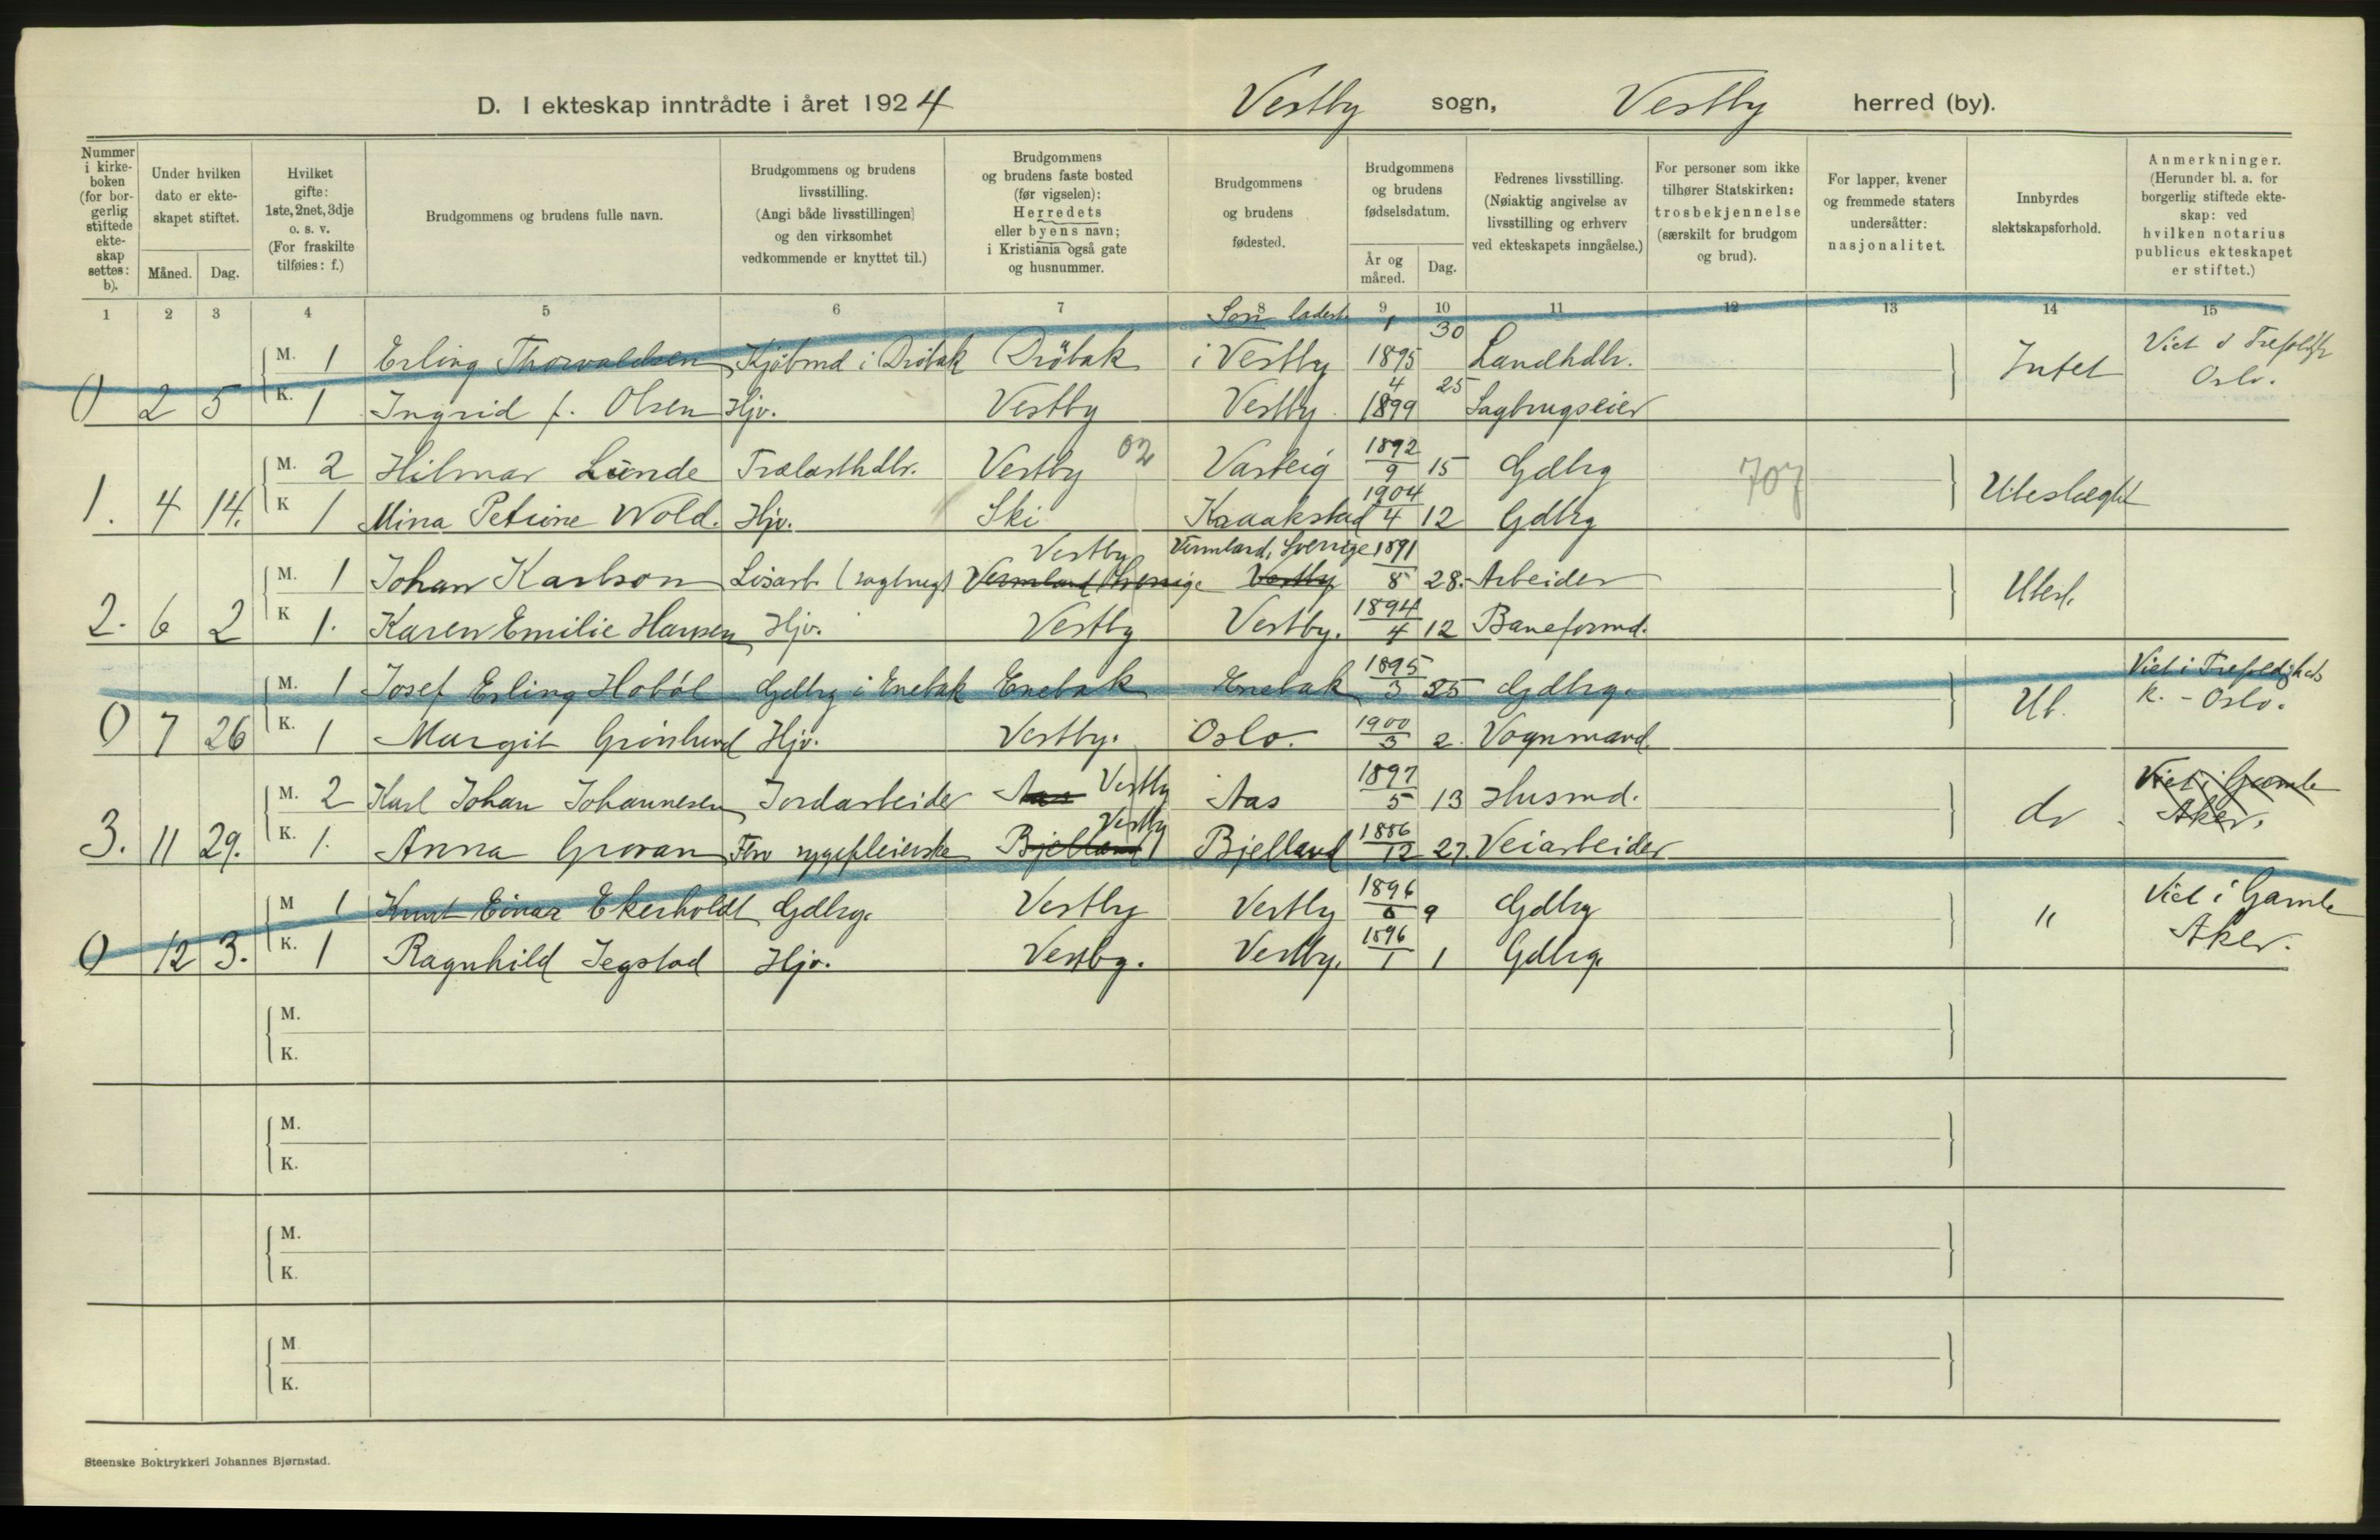 D. I ekteskap inntrådte i året 1924 Vestby sogn, Vestby herred (by).
Nummer i kirkeboken (for borgerlig stiftede ekteskap settes: b).
Under hvilken dato er ekteskapet stiftet.
Måned. Dag.
Hvilket gifte: 1ste, 2net, 3dje o. s. v. (For fraskilte tilføies: f.)
Brudgommens og brudens fulle navn.
Brudgommens og brudens livsstilling. (Angi både livsstillingen og den virksomhet vedkommende er knyttet til.)
Brudgommens og brudens faste bosted (før vigselen): Herredets eller byens navn; i Kristiania også gate og husnummer.
Brudgommens og brudens fødested.
Brudgommens og brudens fødselsdatum.
År og måned. Dag.
Fedrenes livsstilling. (Nøiaktig angivelse av livsstilling og erhverv ved ekteskapets inngåelse.)
For personer som ikke tilhører Statskirken: trosbekjennelse (særskilt for brudgom og brud).
For lapper, kvener og fremmede staters undersåtter: nasjonalitet.
Innbyrdes slektskapsforhold.
Anmerkninger. (Herunder bl. a. for borgerlig stiftede ekteskap: ved hvilken notarius publicus ekteskapet er stiftet.)
1 2 3 4 5 6 7 8 9 10 11 12 13 14 15
M. 1 Erling Thorvaldsen Kjøbmd i Drøbak Drøbak Son ladest. i Vestby 1 1895 30 Landhdlr. Intet Viet i Oslo.
0 2 5 K. 1 Ingrid f. Olsen Hjv. Vestby Vestby. 4 1899 25 Sagbrugseier
M. 2 Hilmar Lunde Trælasthdlr. Vestby 02 Varteig 1892 9 15 Gdbrg 707 Ubeslægtet
1. 4 14. K 1 Mina Petrine Wold. Hjv. Ski Kraakstad 1904 4 12 Gdbrg
M. 1 Johan Karlson Løsarb. (sagbrug) Vestby Vermland Sverige Vermland, Sverige Vestby 1891 8 28. Arbeider Ubesl.
2. 6 2 K 1. Karen Emilie Hansen Hjv. Vestby Vestby. 1894 4 12 Baneformd.
M. 1 Josef Erling Hobøl Gdbrg i Enebak Enebak Enebak 1895 3 25 Gdbrg. Ub. Viet i Trefoldigheds k. - Oslo.
0 7 26 K. 1 Margit Grønlund Hjv. Vestby. Oslo. 1900 3 2. Vognmand.
M. 2 Karl Johan Johannesen Jordarbeider Aas Vestby Aas 1897 5 13 Husmd. do Viet i Gamle Aker.
3. 11 29. K. 1. Anna Grovan sygepleierske Vestby Bjelland Bjelland 1886 12 27. Veiarbeider
M 1 Knut Einar Ekerholdt Gdbrg. Vestby Vestby 1896 9 Gdbrg " Viet i Gamle Aker.
0 12 3. K. 1 Ragnhild Tegstad Hjv. Vestby. Vestby. 1896 1 1 Gdbrg.
M.
K.
M.
K.
M.
K.
M
K.
Steenske Boktrykkeri Johannes Bjørnstad.